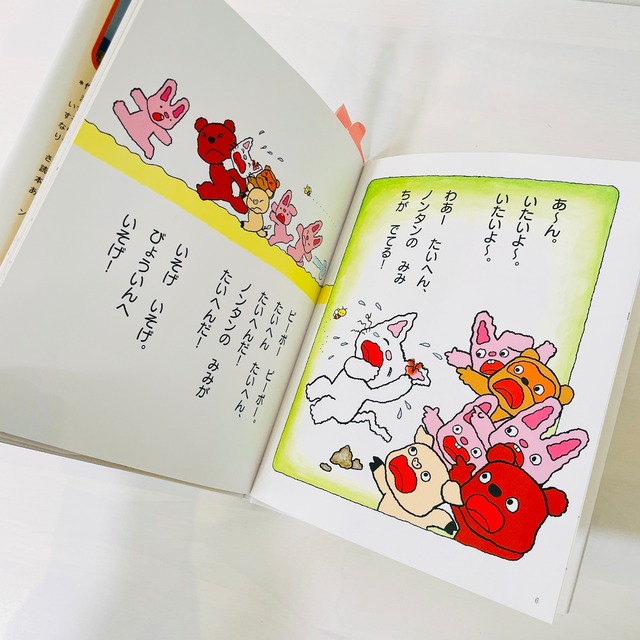 あ〜ん。
いたいよ〜。
いたいよ〜。
わあー たいへん、
ノンタンの みみ
ちが でてる!
6
ピーポー ピーポー。
たいへん たいへん、
たいへんだー!
ノンタンの みみが
たいへんだー!
いそげ いそげ。
びょういんへ
いそげ!